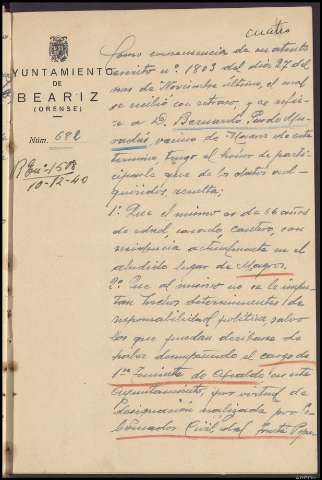 cuatro
AYUNTAMIENTO
DE
BEARIZ
(ORENSE)
Núm. 692
10-12-40
Como consecuencia de su atento
escrito nº. 1803 del dia 27 del
mes de Noviembre último, el cual
se recibió con retraso, y se refie-
re a D. Bernardo
vecino de Magros de este
termino, tengo el honor de parti-
ciparle que de los datos ad-
quiridos, resulta;
1º. Que el mismo es de 56 años
de edad, casado, cantero, con
residencia actualmente en el
aludido lugar de Magros.
2º. Que al mismo no se le impu-
tan hechos determinantes de
responsabilidad politica, salvo
los que puedan derivarse de
haber desempeñado el cargo de
1er Teniente de Alcalde en este
Ayuntamiento, por virtud de
designación realizada por Go-
bernador Civil, del Frente Popu-